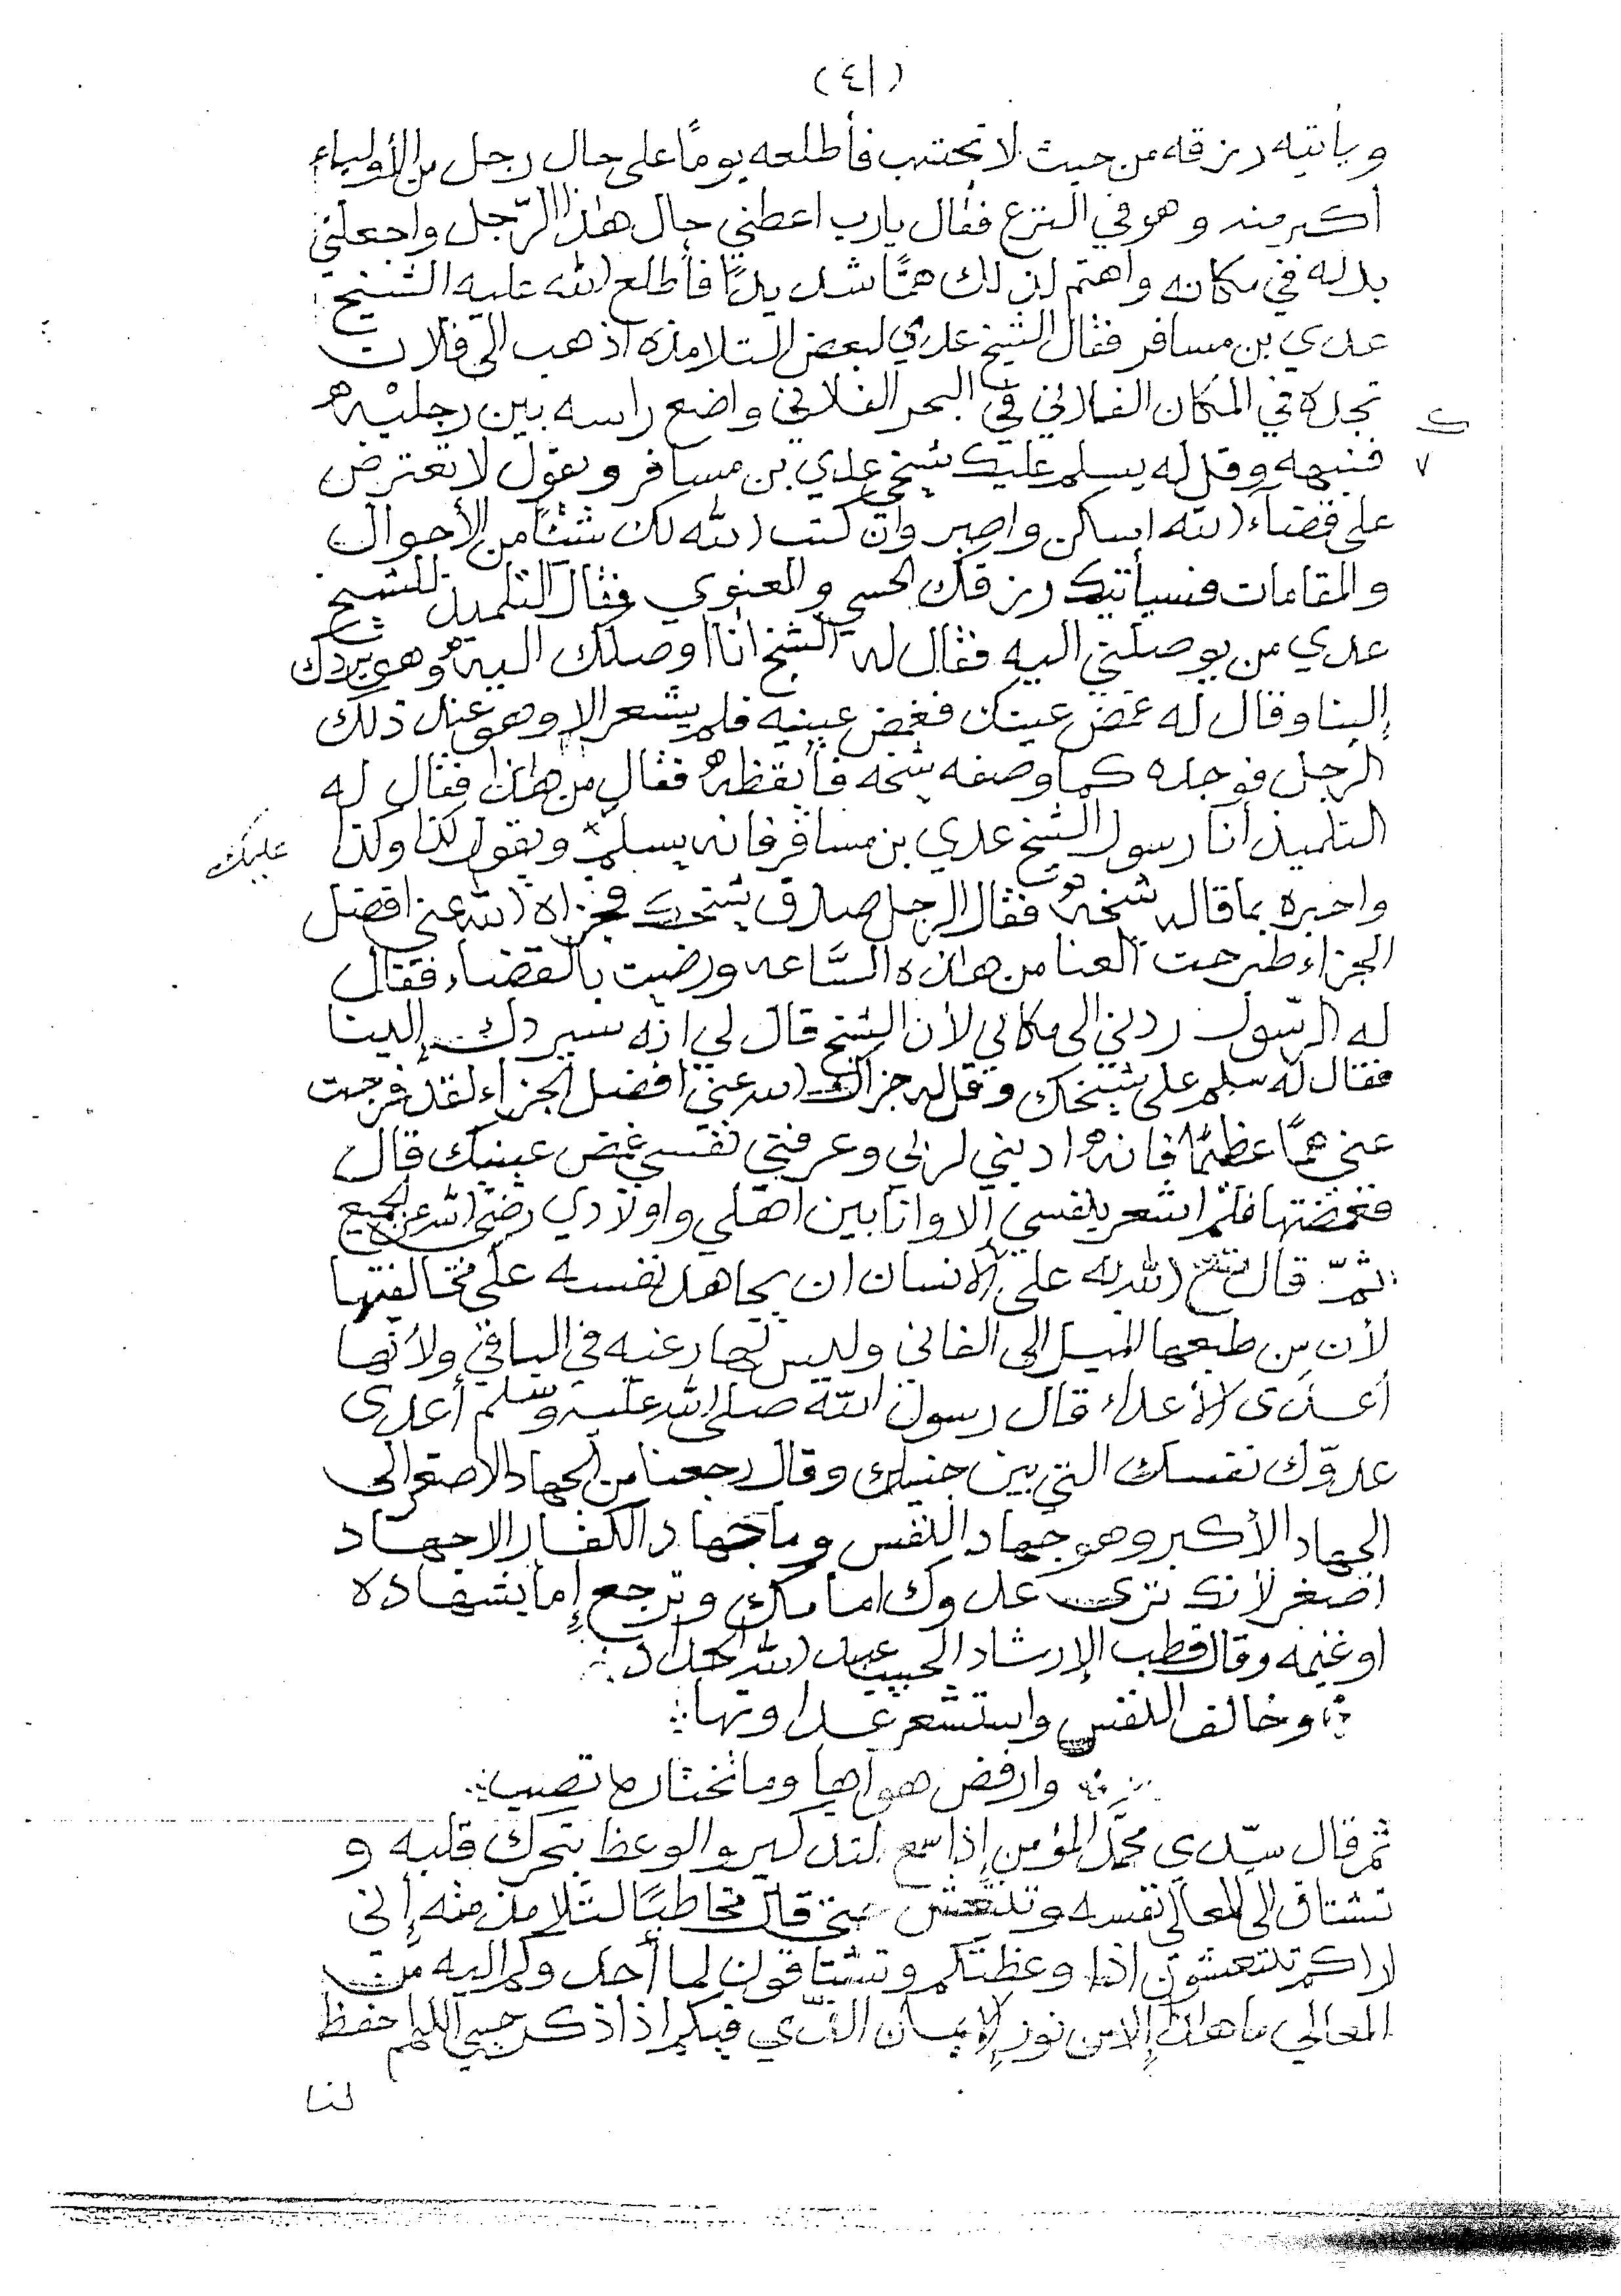 (٤١)
ويأتيه رزقه من حيث لا تحتسب فأطلعه يومًا على حال رجل من الأولياء
أكبر منه وهو في النزع فقال يارب اعطني حال هذا الرّجل واجعلني
بدله في مكانه واهتم لذلك همًّا شديدًا فأطلع الله عليه الشيخ
عدي بن مسافر فقال الشيخ عدي لبعض التلامذه اذهب الى فلان
تجده في المكان الفلاني في البحر الفلاني واضع راسه بين رجليْه
فنبهه وقل له يسلم عليك شيخي عدي بن مسافر ويقول لا تعترض
على قضاء الله اسكن واصبر وان كتب الله لك شئًا من الأحوال
والمقامات فسيأتيك رزقك الحسي والمعنوي فقال التلميذ للشيخ
عدي من يوصلني اليه فقال له الشيخ انا اوصلك اليه وهو يردك
إلينا وقال له غمض عينك فغمض عينيه فلم يشعر إلا وهو عند ذلك
الرجل فوجده كما وصفه شيخه فأيقظه فقال من هذا فقال له
التلميذ أنا رسول الشيخ عدي بن مسافر فانه يسلم ويقول كذا وكذا
عليك
واخبره بما قاله شيخه فقال الرجل صدق شيخك فجزاه الله عني افضل
الجزاء طرحت العنا من هذه السَّاعه ورضيت بالقضاء فقال
له الرّسول ردني الى مكاني لأن الشيخ قال لي انه سيردك إلينا
فقال له سلم على شيخك وقل له جزاك الله عني افضل الجزاء لقد فرجت
عني همًّا عظيمًا فانه ادبني لربي وعرفني نفسي غمض عينيك قال
فغمضتها فلم اشعر بنفسي إلا وانا بين اهلي واولادي رضي الله عن الجميع
ثمّ قال نفع الله به على الانسان ان يجاهد نفسه على مخالفتها
لأن من طبعها الميل الى الفاني وليس لها رغبه في الباقي ولأنها
أعدى الأعداء قال رسول الله صلى الله عليه وسلم أعدى
عدوّك نفسك التي بين جنبيك وقال رجعنا من الجهاد الاصغر الى
الجهاد الأكبر وهو جهاد النفس وما جهاد الكفار الا جهاد
اصغر لأنك ترى عدوك امامك وترجع إما بشهاده
او غنيمه وقال قطب الإرشاد الحبيب عبد الله الحداد
وخالف النفس واستشعر عداوتها
وارفض هواها وما تختاره تصب
ثم قال سيّدي محمّد المؤمن إذا سمع التذكير والوعظ يتحرك قلبه و
تشتاق الى المعالي نفسه وتنتعش حتى قال مخاطبًا لتلامذته إني
لاراكم تنتعشون اذا وعظتكم وتشتاقون لما أحدوكم اليه من
المعالي ما هذا إلا من نور الإيمان الذي فيكم اذا ذكر حيي اللهم احفظ
لنا